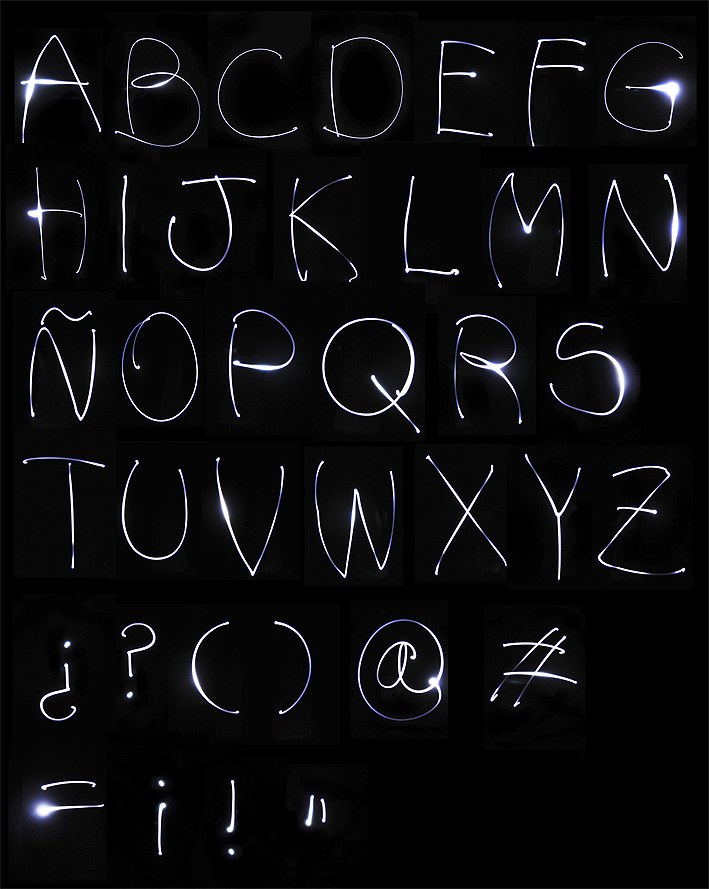 A B C D E F G
H I J K L M N
Ñ O P Q R S
T U V W X Y Z
¿ ? ( ) @ #
= ¡ ! "